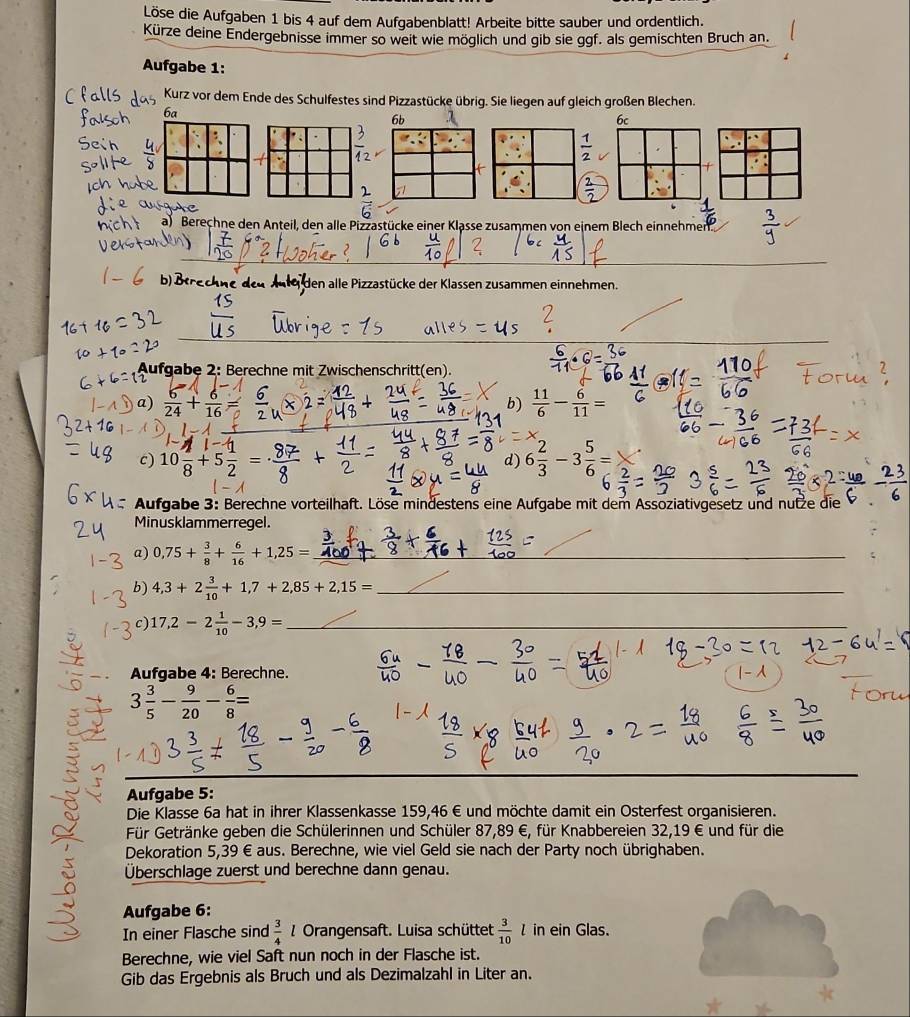 Löse die Aufgaben 1 bis 4 auf dem Aufgabenblatt! Arbeite bitte sauber und ordentlich.
Kürze deine Endergebnisse immer so weit wie möglich und gib sie ggf. als gemischten Bruch an.
Aufgabe 1:
(falls das
falsch
sein
sollte
ich habe
die
nicht
verstanden)
Kurz vor dem Ende des Schulfestes sind Pizzastücke übrig. Sie liegen auf gleich großen Blechen.
6a 6b 6c
4/8 3/12 1/2
2/6 2/2 1/6 3/9
a) Berechne den Anteil, den alle Pizzastücke einer Klasse zusammen von einem Blech einnehmen.
7/20 6a ? woher? 6b 4/10 f ? 6c 4/15 f
1-6 b) Berechne den Anteil, den alle Pizzastücke der Klassen zusammen einnehmen.
16+16=32 15/45 übrige = 15 alles = 45 ?
10+10=20
6+6=12
Aufgabe 2: Berechne mit Zwischenschritt(en).
6/11 · 6 = 36/66 11/6 · 11 = 110/66 f Form?
a) 6/24 + 6/16 = 6/24 x 2 = 12/48 + 24/48 = 36/48 = x b) 11/6 − 6/11 =
110/66 − 36/66 = 73/66 f = x
32+16
=48
c) 10 7/8 + 5 1/2 = 87/8 + 11/2 = 44/8 + 87/8 = 131/8 = x d) 6 2/3 − 3 5/6 =
11/2 x 4 = 44/8 6 2/3 = 20/3 3 5/6 = 23/6 20/3 x 2 = 40/6 23/6
6 x 4 =
24
Aufgabe 3: Berechne vorteilhaft. Löse mindestens eine Aufgabe mit dem Assoziativgesetz und nutze die
Minusklammerregel.
1-3 a) 0,75 + 3/8 + 6/16 + 1,25 = 3/100 f + 3/8 + 6/16 + 125/100 =
1-3 b) 4,3 + 2 3/10 + 1,7 + 2,85 + 2,15 =
1-3 c) 17,2 − 2 1/10 − 3,9 =
64/40 − 18/40 − 30/40 = 1-1 18-30=12 12-64=
1-1
Aufgabe 4: Berechne.
3 3/5 − 9/20 − 6/8 =
Form
1-1) 3 3/5 = 18/5 − 9/20 − 6/8 1-1 18/5 x 8 64/40 f 9/20 · 2 = 18/40 6/8 = 30/40
(Neben-)Rechnungen bitte
ins Heft!
Aufgabe 5:
Die Klasse 6a hat in ihrer Klassenkasse 159,46 € und möchte damit ein Osterfest organisieren.
Für Getränke geben die Schülerinnen und Schüler 87,89 €, für Knabbereien 32,19 € und für die
Dekoration 5,39 € aus. Berechne, wie viel Geld sie nach der Party noch übrighaben.
Überschlage zuerst und berechne dann genau.
Aufgabe 6:
In einer Flasche sind 3/4 l Orangensaft. Luisa schüttet 3/10 l in ein Glas.
Berechne, wie viel Saft nun noch in der Flasche ist.
Gib das Ergebnis als Bruch und als Dezimalzahl in Liter an.